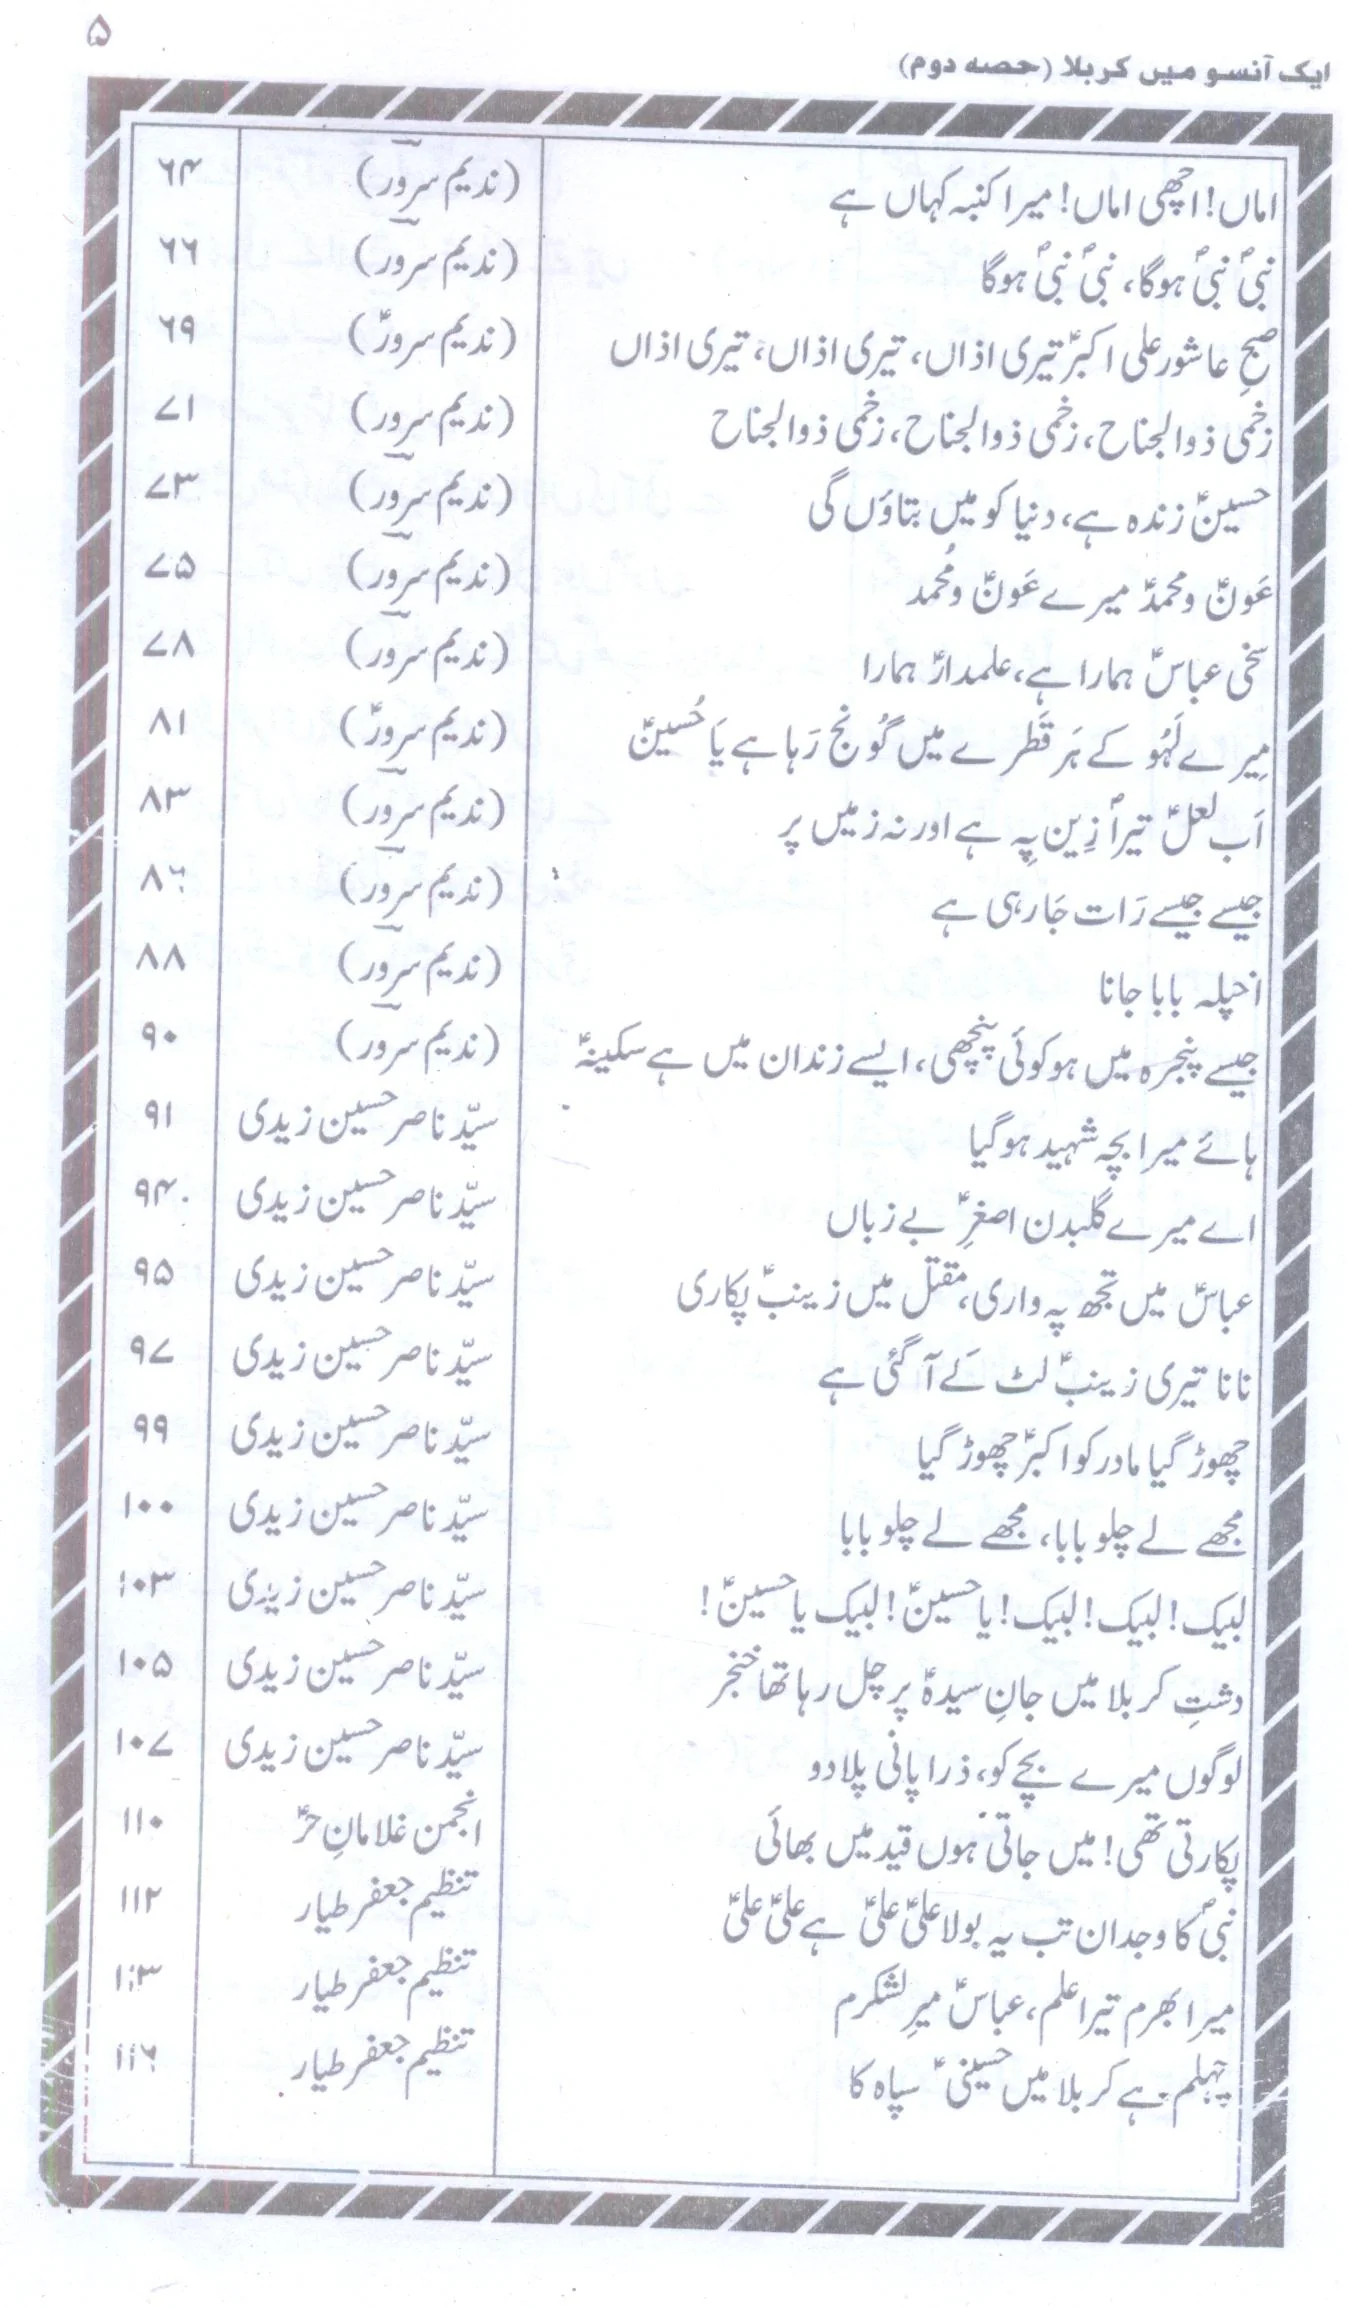 ایک آنسو میں کربلا (حصہ دوم) ۵
اماں! اچھی اماں! میرا کنبہ کہاں ہے (ندیم سرور) ۶۴
نبیؐ نبیؐ ہوگا، نبیؐ نبیؐ ہوگا (ندیم سرور) ۶۶
صبحِ عاشور علی اکبرؑ تیری اذاں، تیری اذاں، تیری اذاں (ندیم سرور) ۶۹
زخمی ذوالجناح، زخمی ذوالجناح، زخمی ذوالجناح (ندیم سرور) ۷۱
حسینؑ زندہ ہے، دنیا کو میں بتاؤں گی (ندیم سرور) ۷۳
عَونؑ و محمدؑ میرے عَونؑ و مُحمد (ندیم سرور) ۷۵
سخی عباسؑ ہمارا ہے، علمدارؑ ہمارا (ندیم سرور) ۷۸
مِیرے لَہُو کے ہَر قَطرے میں گُونج رَہا ہے یَا حُسینؑ (ندیم سرور) ۸۱
اَب لعلؑ تیرا زِین پِہ ہے اور نہ زمیں پر (ندیم سرور) ۸۳
جیسے جیسے رَات جَارہی ہے (ندیم سرور) ۸۶
بابا جانا (ندیم سرور) ۸۸
جیسے پنجرہ میں ہو کوئی پنچھی، ایسے زندان میں ہے سکینہؑ (ندیم سرور) ۹۰
ہائے میرا بچہ شہید ہوگیا سیّد ناصر حسین زیدی ۹۱
اے میرے گلبدن اصغرِؑ بے زباں سیّد ناصر حسین زیدی ۹۴
عباسؑ میں تجھ پہ واری، مقتل میں زینبؑ پکاری سیّد ناصر حسین زیدی ۹۵
نانا تیری زینبؑ لٹ کے آگئی ہے سیّد ناصر حسین زیدی ۹۷
چھوڑ گیا مادر کو اکبرؑ چھوڑ گیا سیّد ناصر حسین زیدی ۹۹
مجھے لے چلو بابا، مجھے لے چلو بابا سیّد ناصر حسین زیدی ۱۰۰
لبیک! لبیک! لبیک! یا حسینؑ! لبیک یا حسینؑ! سیّد ناصر حسین زیدی ۱۰۳
دشتِ کربلا میں جانِ سیدہؑ پر چل رہا تھا خنجر سیّد ناصر حسین زیدی ۱۰۵
لوگوں میرے بچے کو، ذرا پانی پلا دو سیّد ناصر حسین زیدی ۱۰۷
پکارتی تھی! میں جاتی ہوں قید میں بھائی انجمن غلامانِ حرؑ ۱۱۰
نبیؐ کا وجدان تب یہ بولا علیؑ علیؑ ہے علیؑ علیؑ تنظیم جعفر طیار ۱۱۲
میرا بھرم تیرا علم، عباسؑ میرِ لشکرم تنظیم جعفر طیار ۱۱۳
چہلم ہے کربلا میں حسینیؑ سپاہ کا تنظیم جعفر طیار ۱۱۶